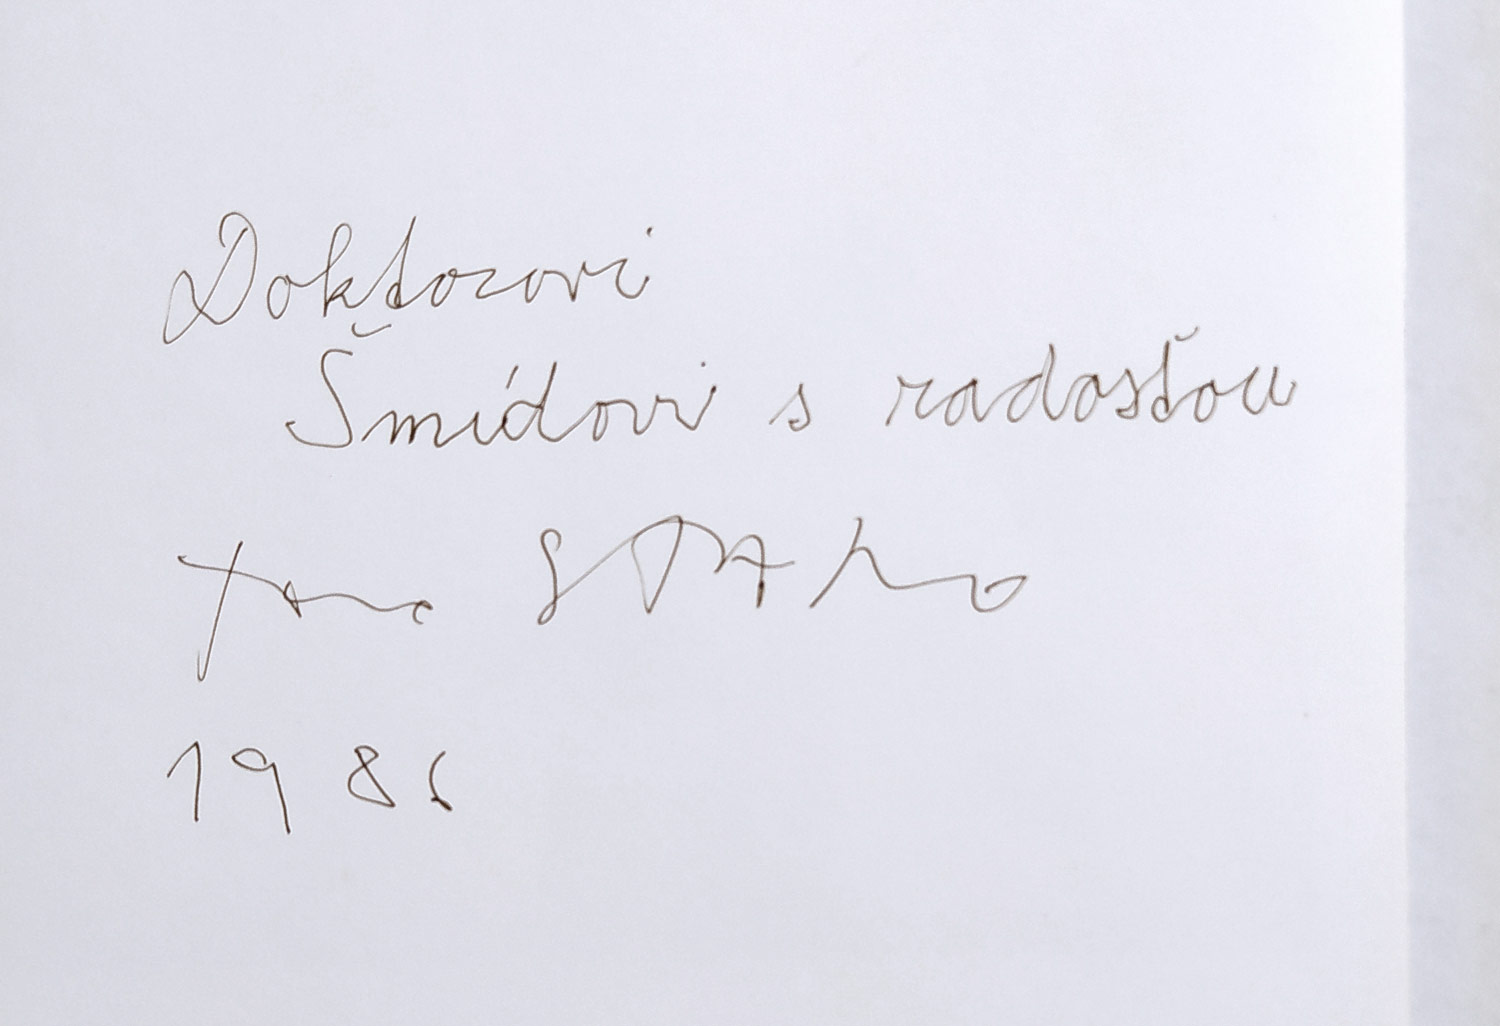 Doktorovi
Šmídovi s radosťou
1986